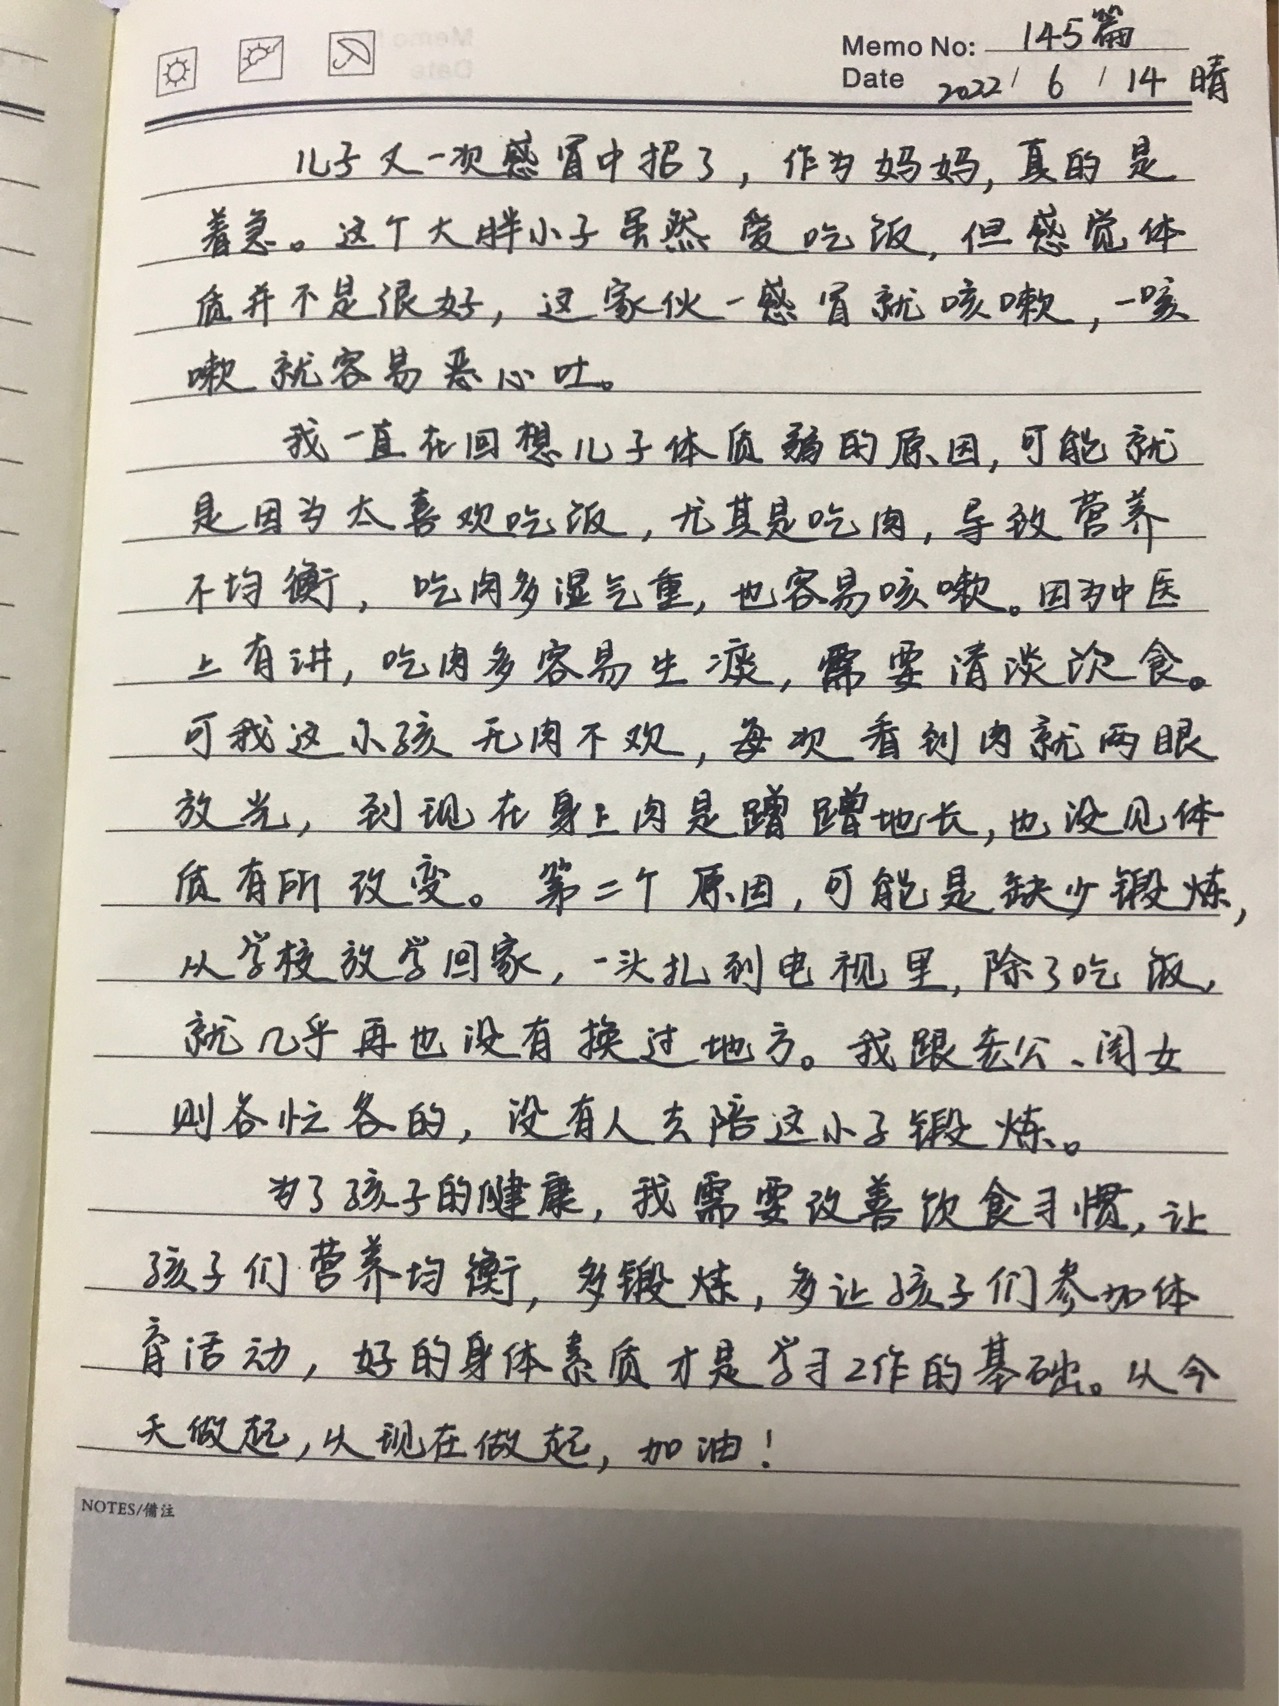 Memo No: 145篇
Date 2022/6/14 晴
儿子又一次感冒中招了，作为妈妈，真的是
着急。这个大胖小子虽然爱吃饭，但感觉体
质并不是很好，这家伙一感冒就咳嗽，一咳
嗽就容易恶心吐。
我一直在回想儿子体质弱的原因，可能就
是因为太喜欢吃饭，尤其是吃肉，导致营养
不均衡，吃肉多湿气重，也容易咳嗽。因为中医
上有讲，吃肉多容易生痰，需要清淡饮食。
可我这小孩无肉不欢，每次看到肉就两眼
放光，到现在身上肉是蹭蹭地长，也没见体
质有所改变。第二个原因，可能是缺少锻炼，
从学校放学回家，一头扎到电视里，除了吃饭，
就几乎再也没有换过地方。我跟老公、闺女
则各忙各的，没有人去陪这小子锻炼。
为了孩子的健康，我需要改善饮食习惯，让
孩子们营养均衡，多锻炼，多让孩子们参加体
育活动，好的身体素质才是学习工作的基础。从今
天做起，从现在做起，加油！
NOTES/備注